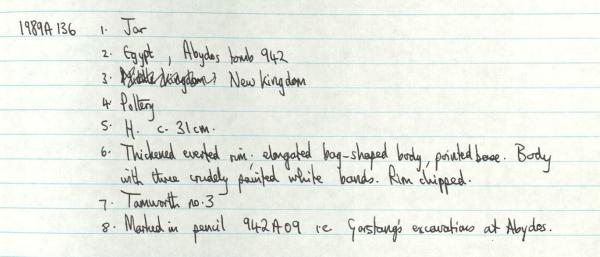 1989A136 1. Jar
2. Egypt, Abydos tomb 942
3. Middle Kingdom? New Kingdom
4. Pottery
5. H. c. 31cm.
6. Thickened everted rim; elongated bag-shaped body, pointed base. Body
with three crudely painted white bands. Rim chipped.
7. Tamworth no. 3
8. Marked in pencil 942A09 ie Garstang's excavations at Abydos.